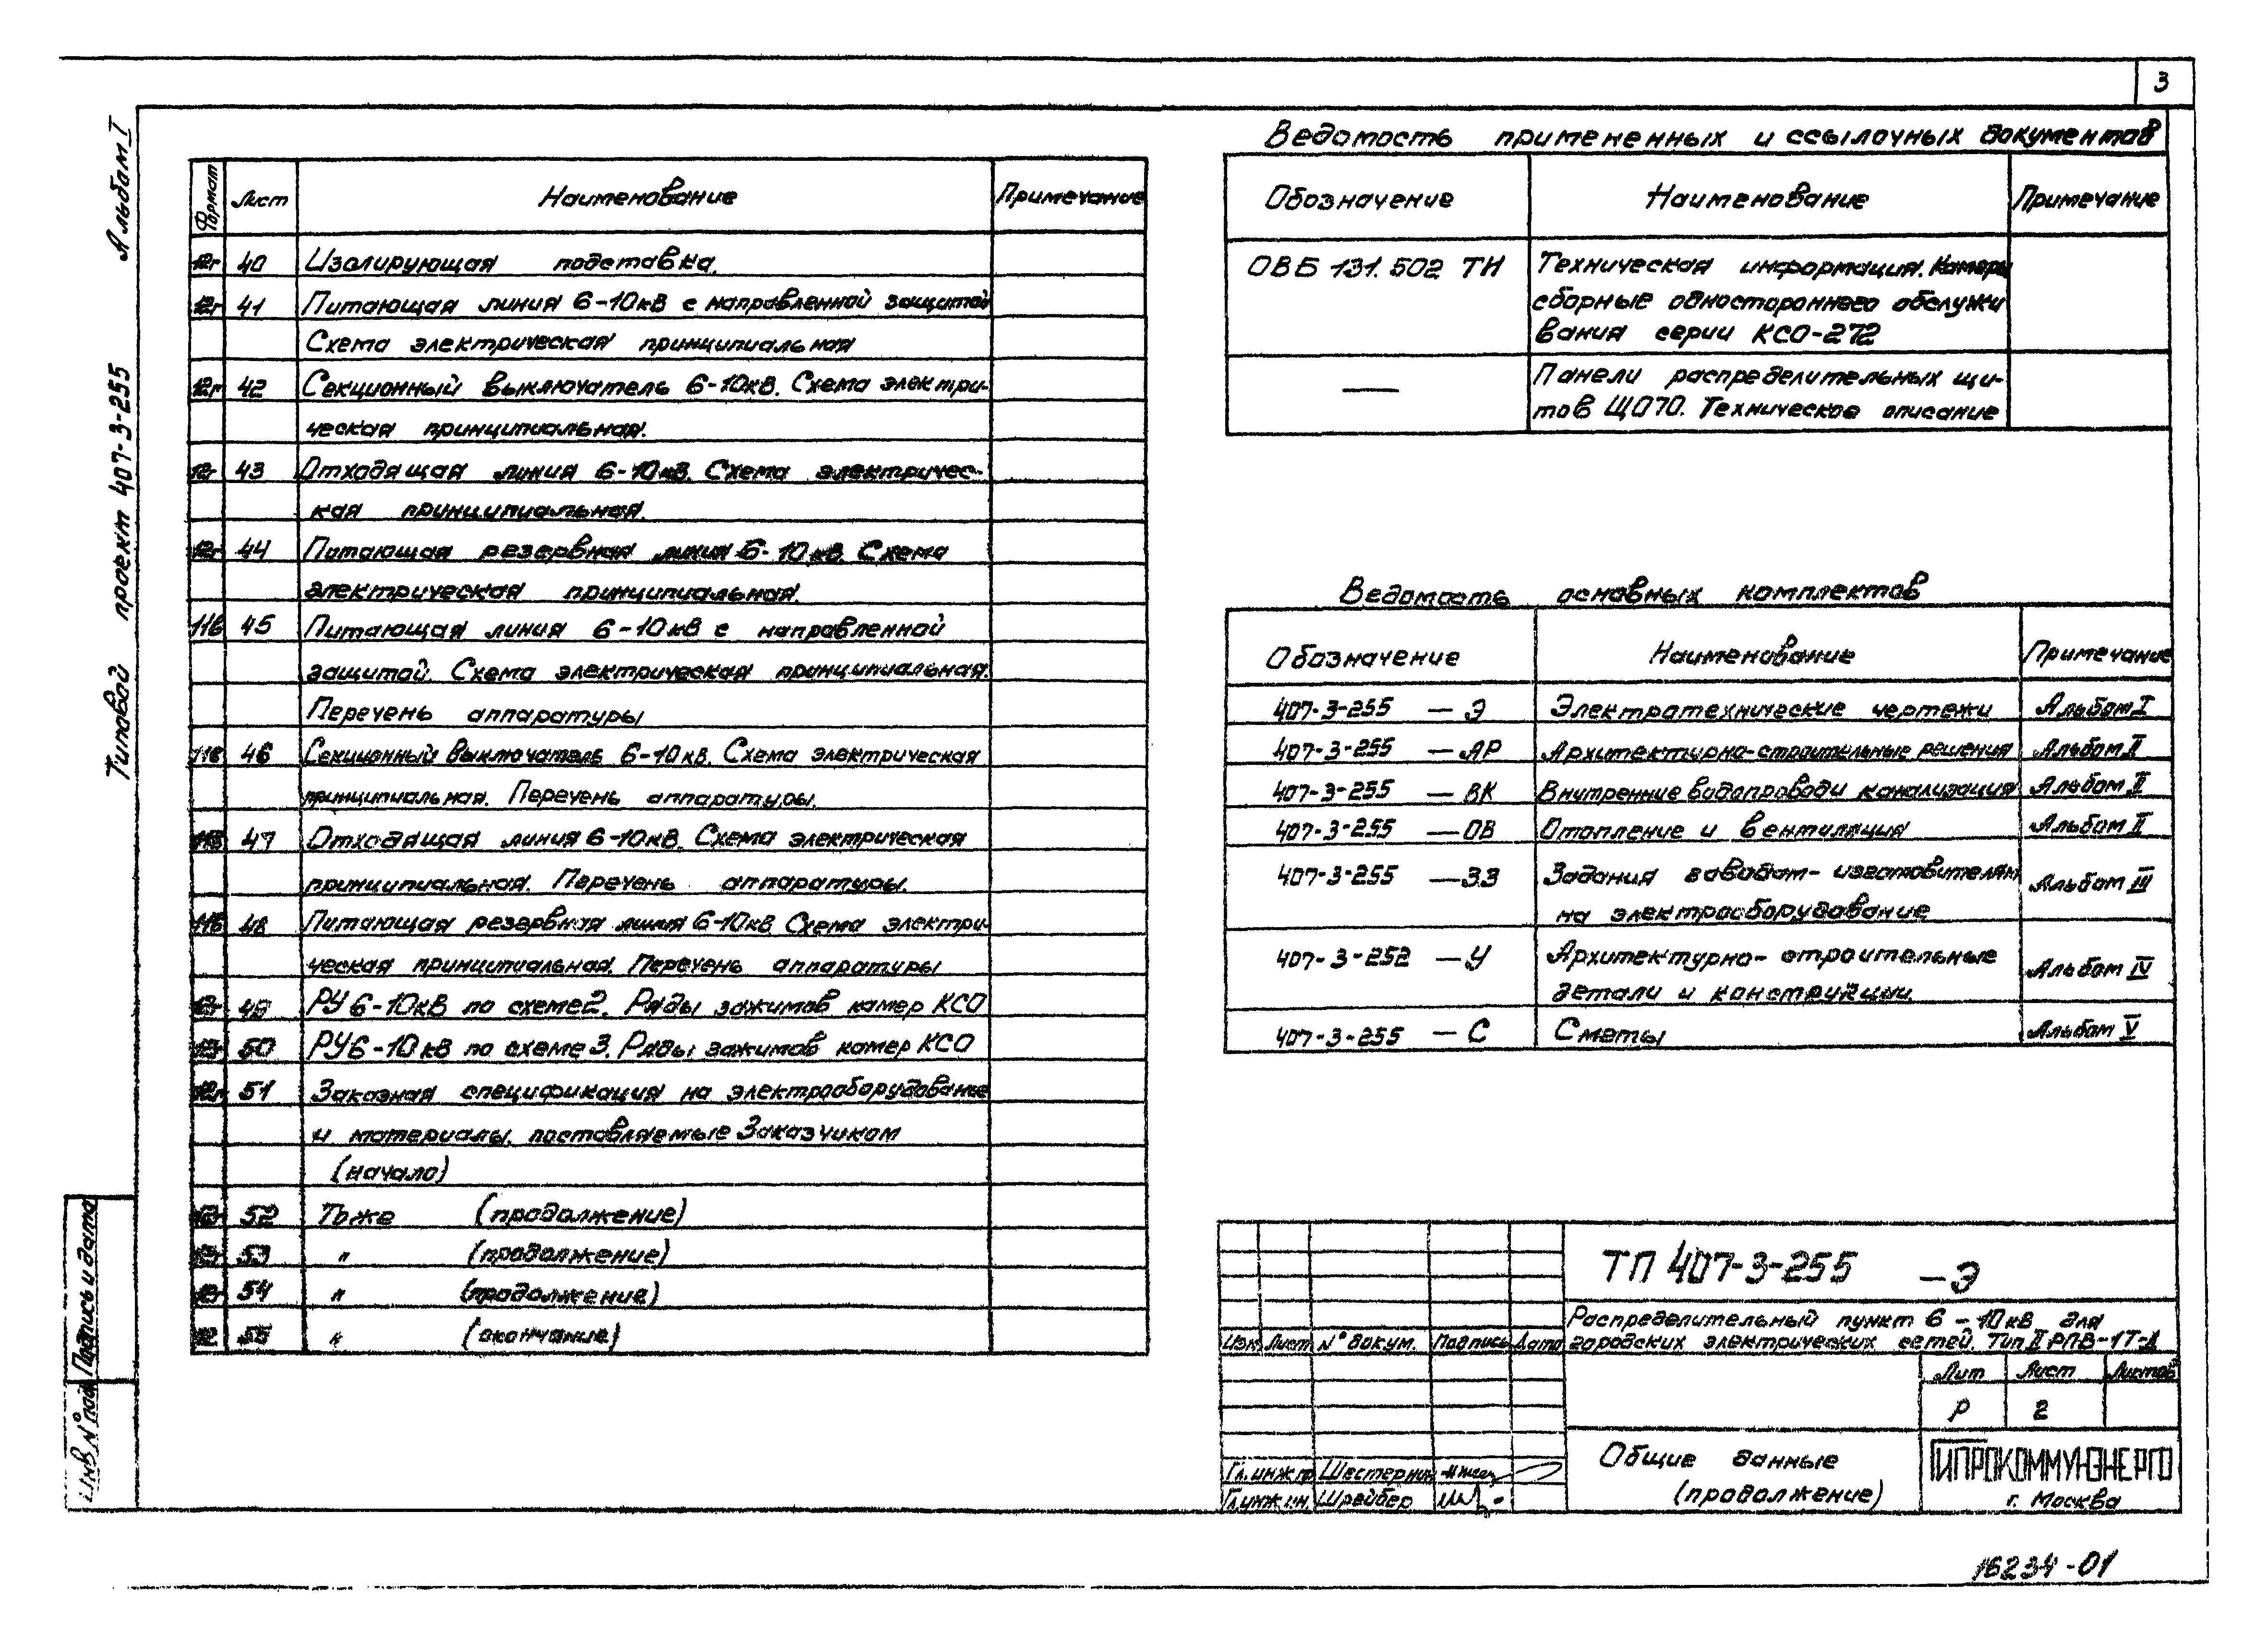 3
Альбом I
Типовой проект 407-3-255
Формат Лист Наименование Примечание
12г 40 Изолирующая подставка.
12г 41 Питающая линия 6-10кВ с направленной защитой
Схема электрическая принципиальная
12г 42 Секционный выключатель 6-10кВ. Схема электри-
ческая принципиальная.
12г 43 Отходящая линия 6-10кВ. Схема электричес-
кая принципиальная.
12г 44 Питающая резервная линия 6-10кВ. Схема
электрическая принципиальная.
11б 45 Питающая линия 6-10кВ с направленной
защитой. Схема электрическая принципиальная.
Перечень аппаратуры
11б 46 Секционный выключатель 6-10кВ. Схема электрическая
принципиальная. Перечень аппаратуры.
11б 47 Отходящая линия 6-10кВ. Схема электрическая
принципиальная. Перечень аппаратуры.
11б 48 Питающая резервная линия 6-10кВ Схема электри-
ческая принципиальная. Перечень аппаратуры
49 РУ 6-10кВ по схеме 2. Ряды зажимов камер КСО
50 РУ 6-10кВ по схеме 3. Ряды зажимов камер КСО
12г 51 Заказная спецификация на электрооборудование
и материалы, поставляемые Заказчиком
(начало)
52 То же (продолжение)
53 " (продолжение)
54 " (продолжение)
55 " (окончание)
Ведомость примененных и ссылочных документов
Обозначение Наименование Примечание
ОВБ 131.502 ТН Техническая информация. Камеры
сборные одностороннего обслужи
вания серии КСО-272
— Панели распределительных щи-
тов ЩО70. Техническое описание
Ведомость основных комплектов
Обозначение Наименование Примечание
407-3-255 — Э Электротехнические чертежи Альбом I
407-3-255 — АР Архитектурно-строительные решения Альбом II
407-3-255 — ВК Внутренние водопровод и канализация Альбом II
407-3-255 — ОВ Отопление и вентиляция Альбом II
407-3-255 — ЗЗ Задания заводам-изготовителям Альбом III
на электрооборудование
407-3-252 — У Архитектурно-строительные Альбом IV
детали и конструкции.
407-3-255 — С Сметы Альбом V
ТП 407-3-255 -Э
Распределительный пункт 6-10кВ для
городских электрических сетей. Тип II РПВ-1Т-Д
Изм Лист N° докум. Подпись Дата
Лит Лист Листов
Р 2
Общие данные
(продолжение)
ГИПРОКОММУНЭНЕРГО
г. Москва
Гл.инж.пр Шестернин
Гл.инж.ин. Шрейбер
Подпись и дата
Инв. N° подл
16234-01